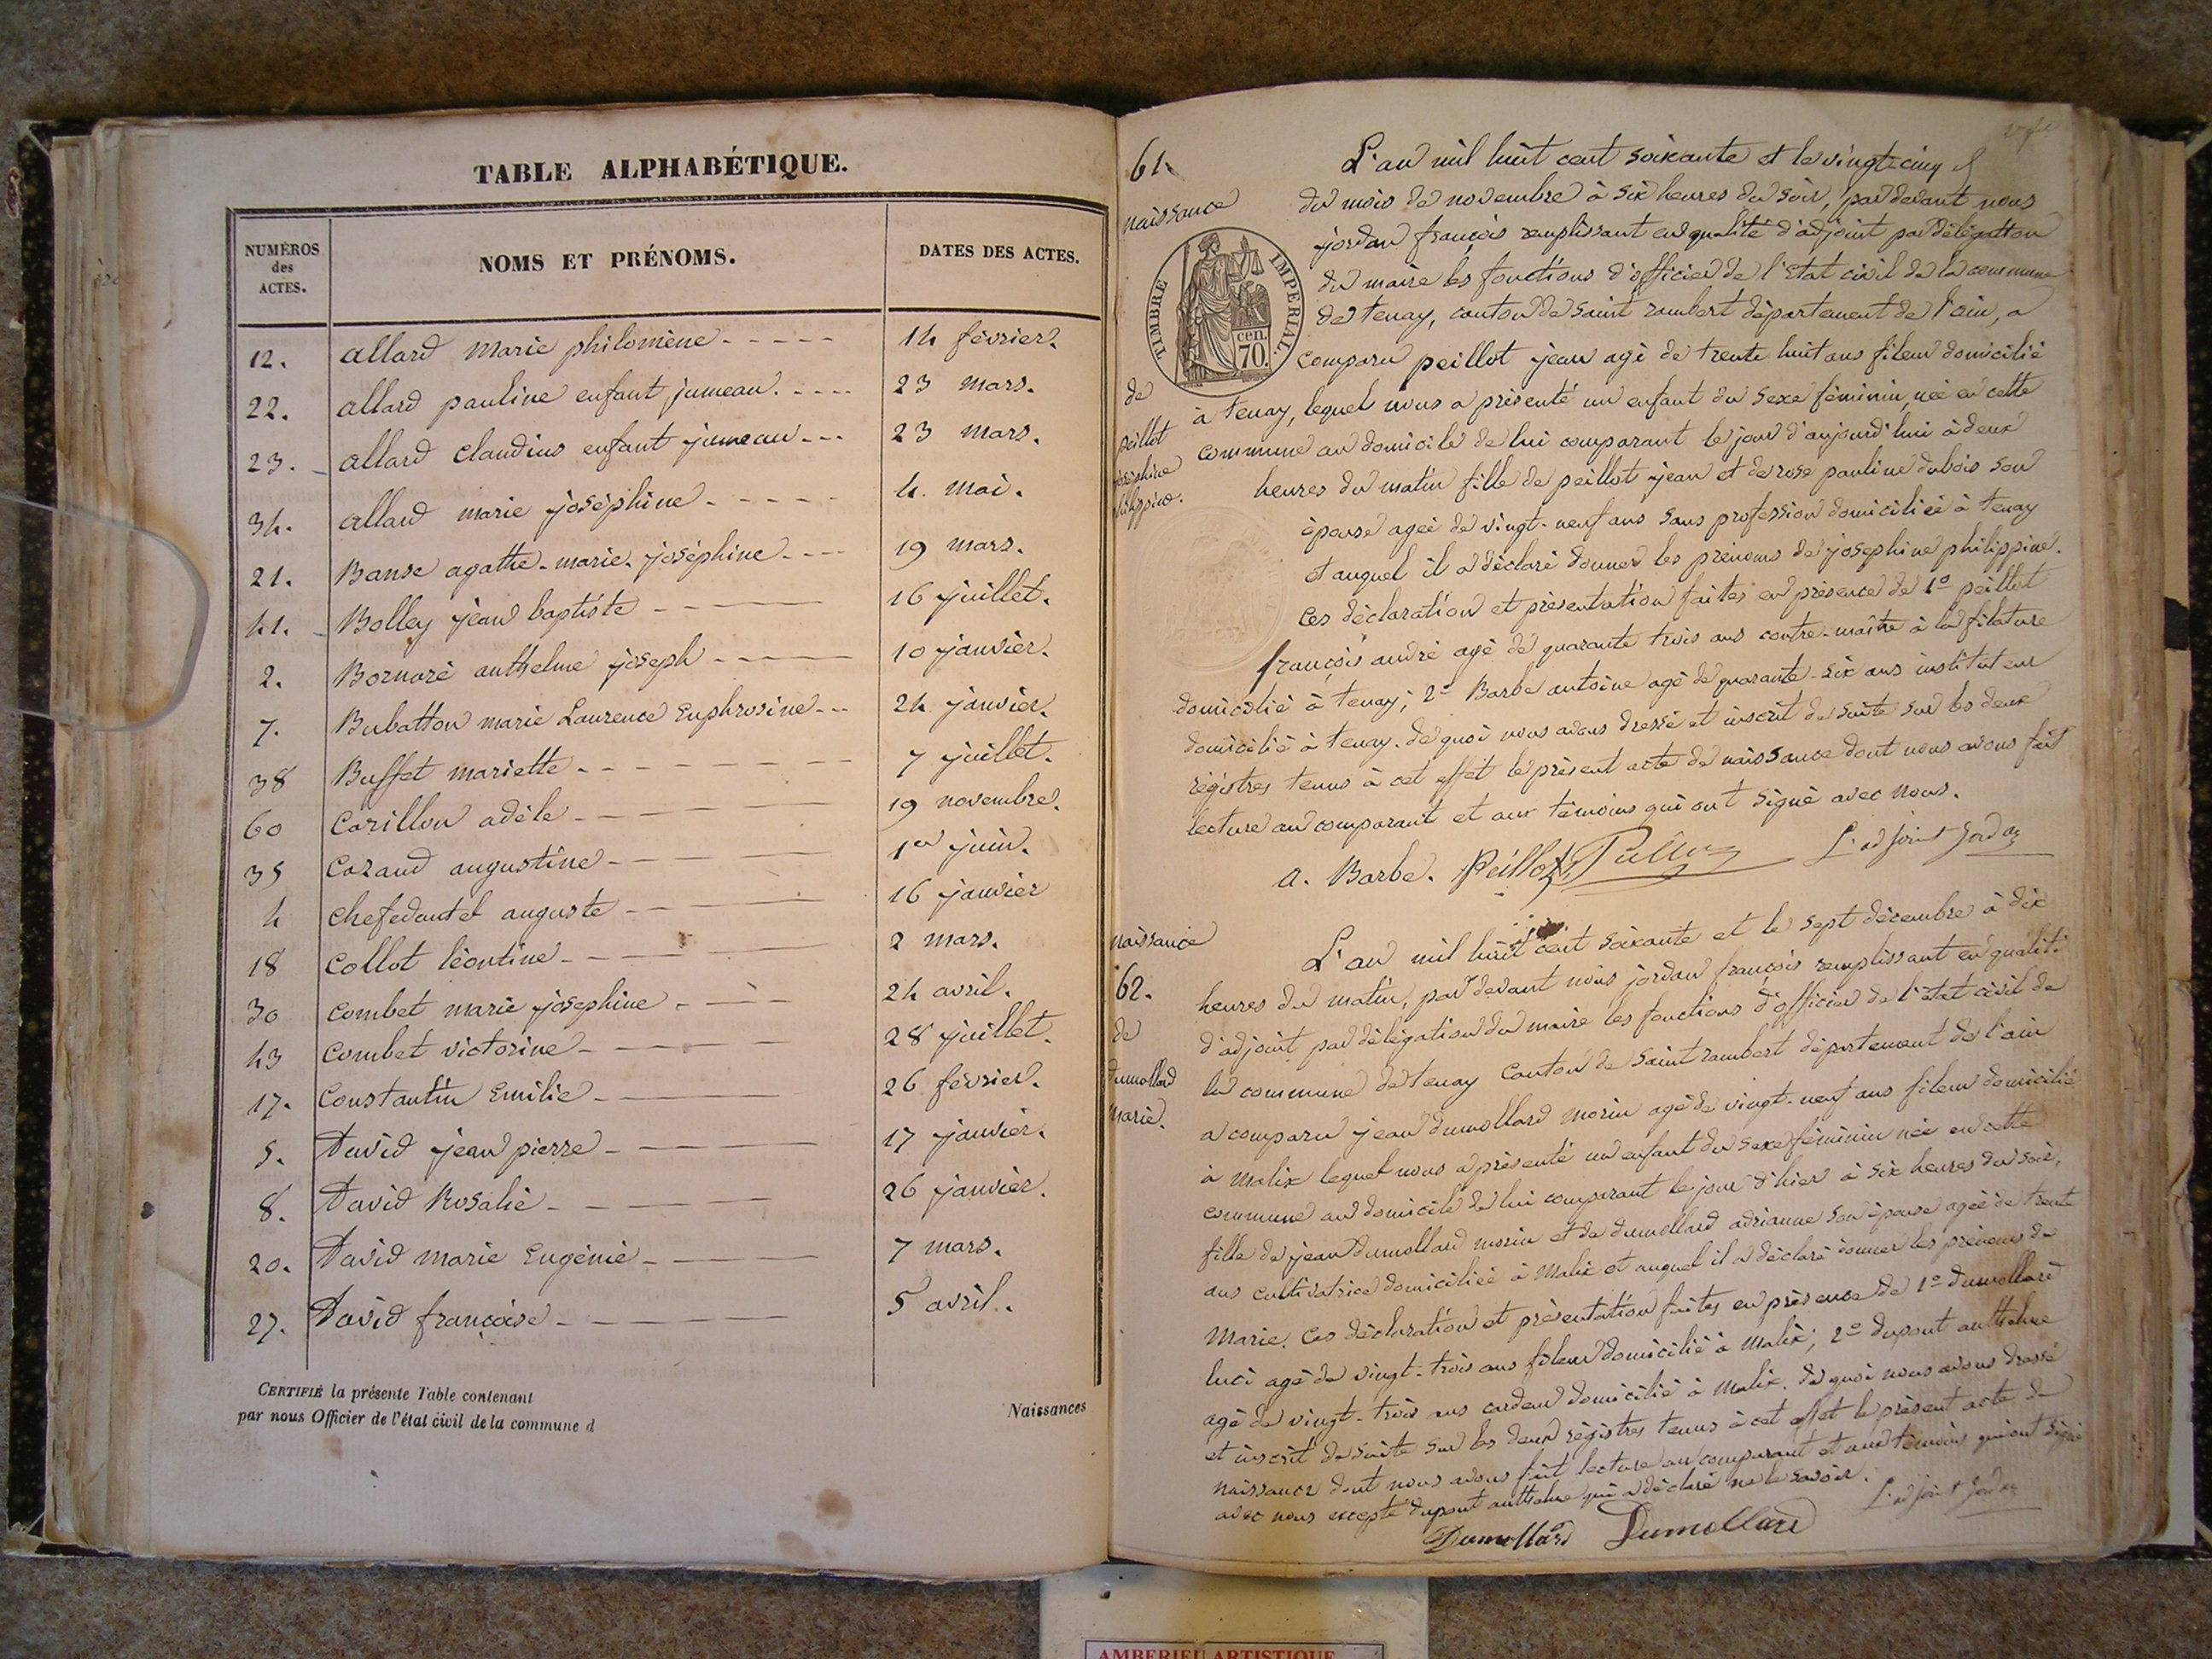 TABLE ALPHABÉTIQUE.
NUMÉROS des ACTES.
NOMS ET PRÉNOMS.
DATES DES ACTES.
12. allard marie philomène 14 février.
22. allard pauline enfant jumeau. 23 mars.
23. allard claudius enfant jumeau 23 mars.
34. allard marie joséphine 4. mai.
21. Banse agathe-marie-joséphine 19 mars.
41. Bolley jean baptiste 16 juillet.
2. Bornaré anthelme joseph 10 janvier.
7. Bubatton marie Laurence Euphrosine 24 janvier.
38 Buffet mariette 7 juillet.
60 Carillon adèle 19 novembre.
35 Cazaud augustine 1er juin.
4 auguste 16 janvier
18 Collot léontine 2 mars.
30 Combet marie josephine 24 avril.
43 Combet victorine 28 juillet.
17. Constantin Emilie 26 février.
5. David jean pierre 17 janvier.
8. David Rosalie 26 janvier.
20. David marie Eugénie 7 mars.
27. David françoise 5 avril.
CERTIFIÉ la présente Table contenant Naissances
par nous Officier de l'état civil de la commune d
61.
naissance
de
peillot
joséphine
philippine.
TIMBRE IMPERIAL.
cen. 70.
L'an mil huit cent soixante et le vingt-cinq
du mois de novembre à six heures du soir, par devant nous
jordan françois remplissant en qualité d'adjoint par délégation
du maire les fonctions d'officier de l'état civil de la commune
de tenay, canton de saint rambert département de l'ain, a
comparu peillot jean agé de trente huit ans fileur domicilié
à tenay, lequel nous a présenté un enfant du sexe féminin, née en cette
commune au domicile de lui comparant le jour d'aujourd'hui à deux
heures du matin fille de peillot jean et de rose pauline dubois son
épouse agée de vingt-neuf ans sans profession domiciliée à tenay
et auquel il a déclaré donner les prénoms de josephine philippine.
ces déclaration et présentation faites en présence de 1º peillot
françois andré agé de quarante trois ans contre-maître à la filature
domicilié à tenay; 2º Barbe antoine agé de quarante-six ans instituteur
domicilié à tenay. de quoi nous avons dressé et inscrit de suite sur les deux
régistres tenus à cet effet le présent acte de naissance dont nous avons fait
lecture au comparant et aux témoins qui ont signé avec nous.
a. Barbe. Peillot L'adjoint Jordan
naissance
62.
de
dumollard
marie.
L'an mil huit cent soixante et le sept décembre à dix
heures du matin, par devant nous jordan françois remplissant en qualité
d'adjoint par délégation du maire les fonctions d'officier de l'état civil de
la commune de tenay canton de saint rambert département de l'ain
a comparu jean dumollard morin agé de vingt-neuf ans fileur domicilié
à malix lequel nous a présenté un enfant du sexe féminin née en cette
commune au domicile de lui comparant le jour d'hier à six heures du soir,
fille de jean dumollard morin et de dumollard adrianne son épouse agée de trente
ans cultivatrice domiciliée à malix et auquel il a déclaré donner les prénoms de
marie. Ces déclaration et présentation faites en présence de 1º dumollard
luci agé de vingt-trois ans fileur domicilié à malix; 2º dupont anthelme
agé de vingt-trois ans cardeur domicilié à malix. de quoi nous avons dressé
et inscrit de suite sur les deux régistres tenus à cet effet le présent acte de
naissance dont nous avons fait lecture au comparant et aux témoins qui ont signé
avec nous excepté dupont anthelme qui a déclaré ne le savoir.
Dumollard Dumollard L'adjoint Jordan
AMBERIEU ARTISTIQUE